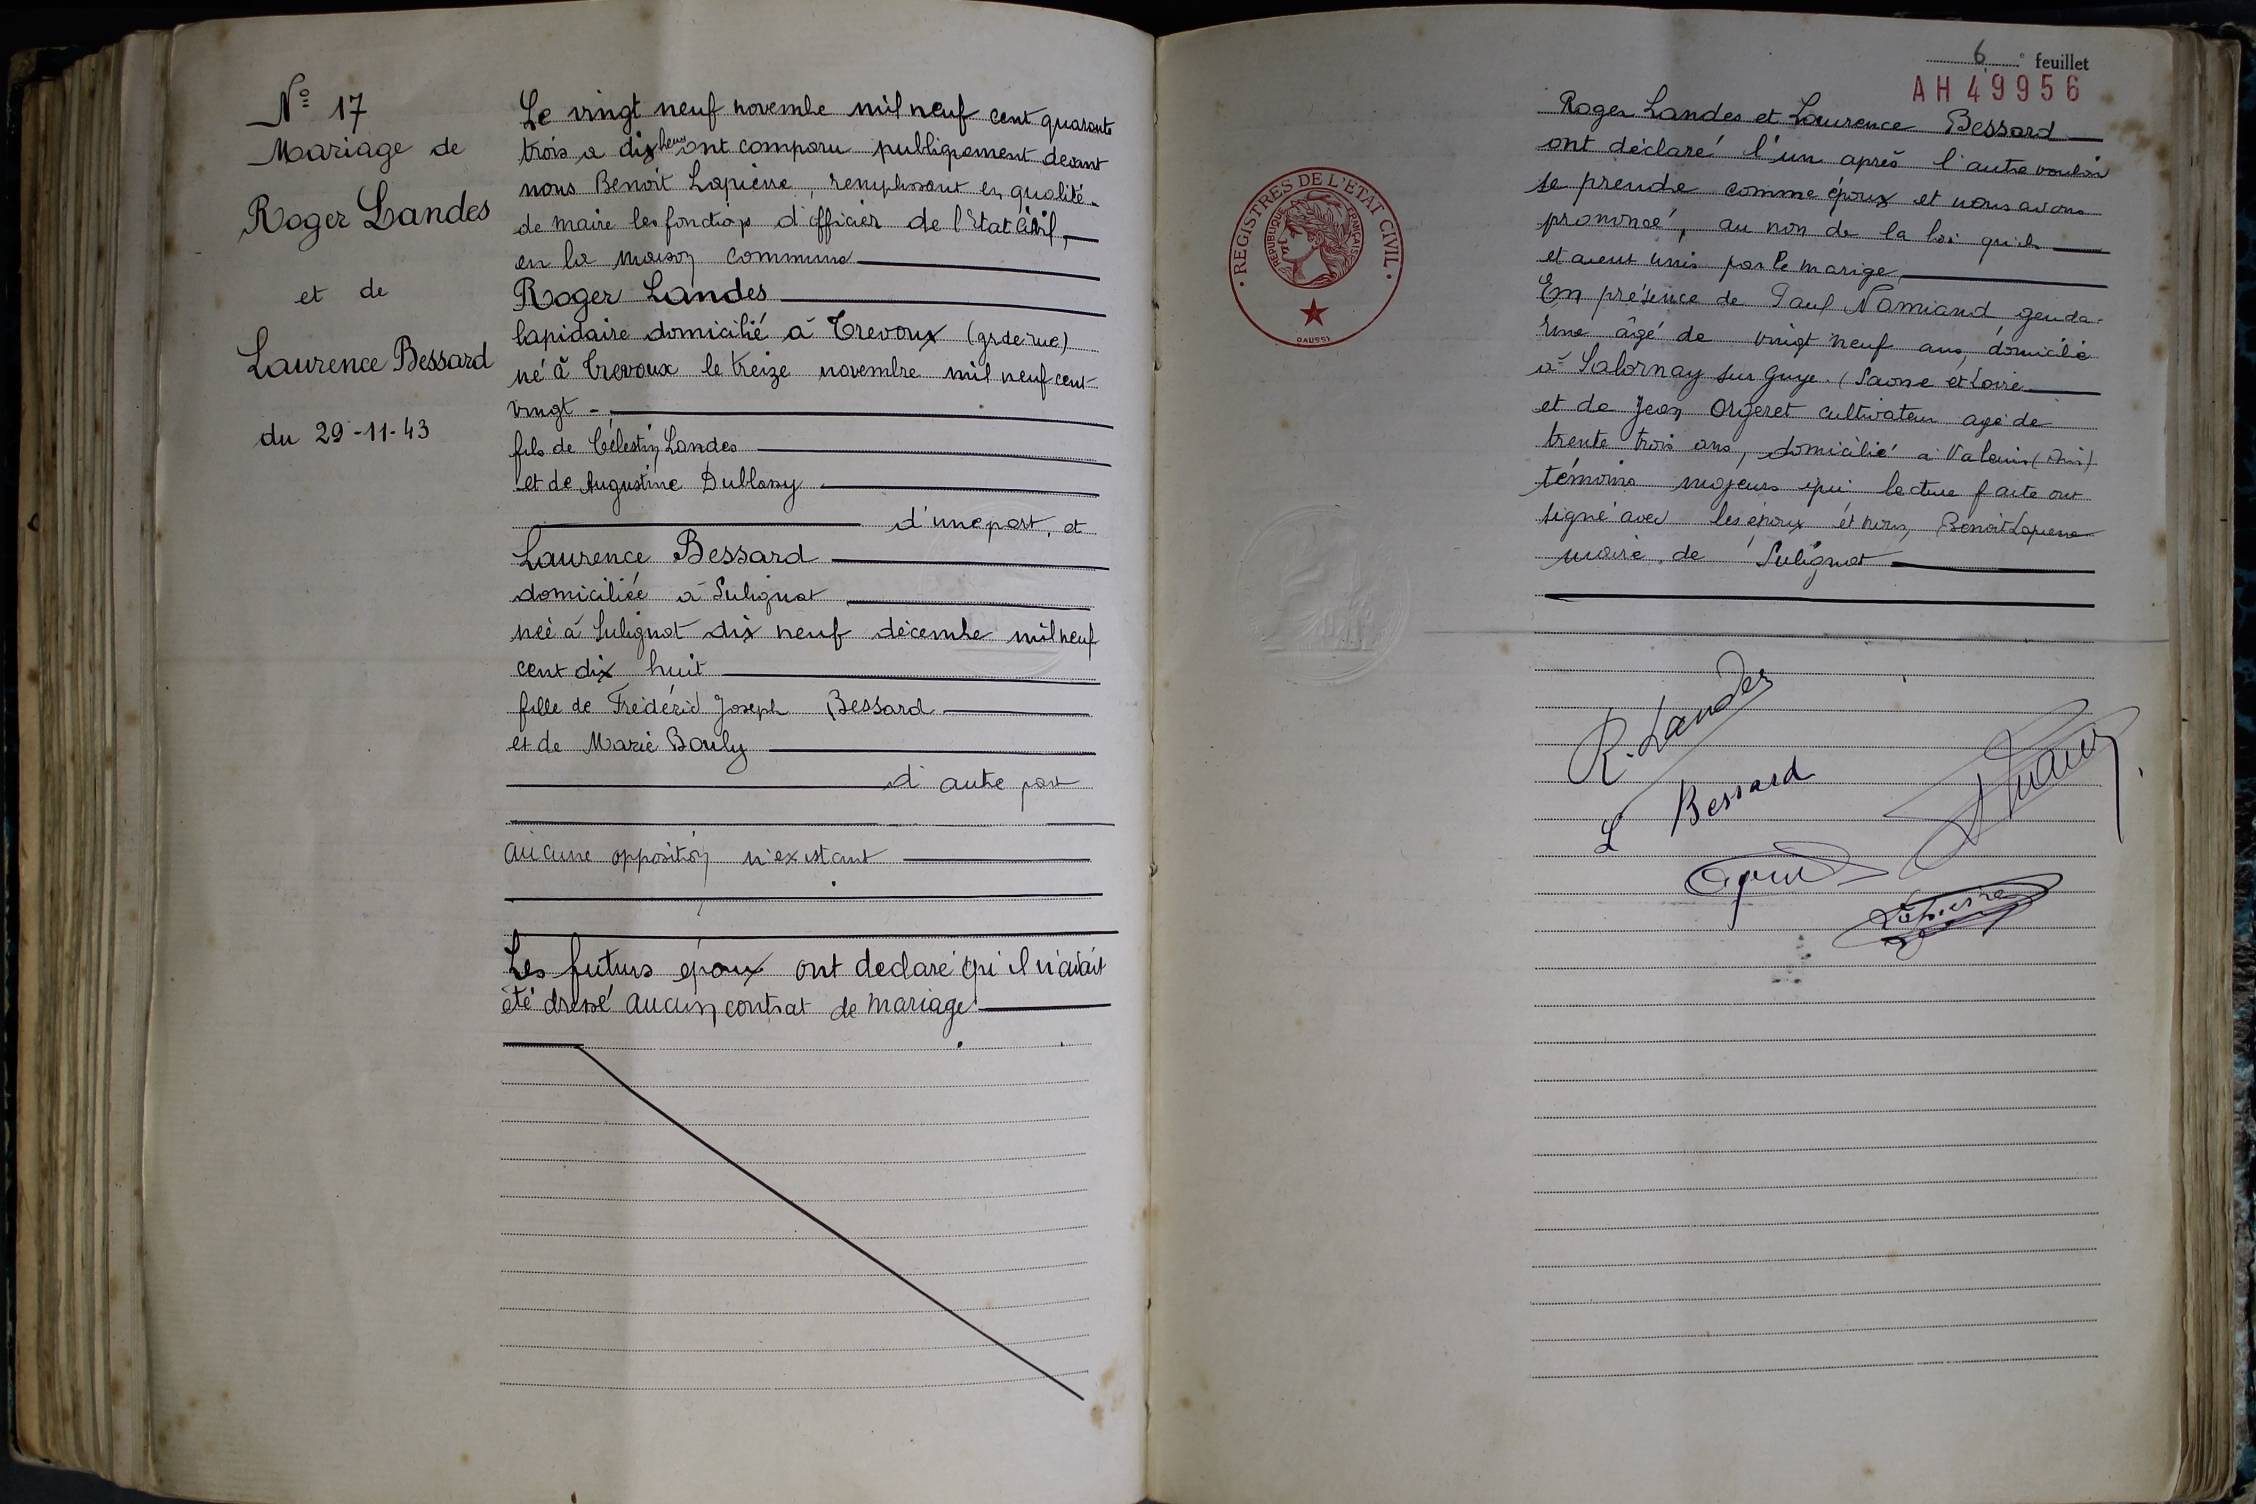 Nº 17
Mariage de
Roger Landes
et de
Laurence Bessard
du 29-11-43
Le vingt neuf novembre mil neuf cent quarante
trois a dix heures ont comparu publiquement devant
nous Benoit Lapierre, remplissant en qualité
de maire les fonctions d'officier de l'Etat Civil,
en la maison commune
Roger Landes
lapidaire domicilié à Trevoux (grde rue)
né à Trevoux le treize novembre mil neuf cent
vingt -
fils de Célestin Landes
et de Augustine Dublassy
d'une part, et
Laurence Bessard
domiciliée à Sulignat
née à Sulignat dix neuf décembre mil neuf
cent dix huit
fille de Frédéric Joseph Bessard
et de Marie Bouly
d'autre part
aucune opposition n'existant
Les futurs époux ont declaré qu'il n'avait
été dressé aucun contrat de mariage
6e feuillet
AH 49956
REGISTRES DE L'ETAT CIVIL
REPUBLIQUE FRANÇAISE
DAUSSY
Roger Landes et Laurence Bessard
ont déclaré l'un après l'autre vouloir
se prendre comme époux et nous avons
prononcé, au nom de la loi qu'ils
étaient unis par le marige
En présence de Paul genda-
rme âgé de vingt neuf ans, domicilié
à Salornay sur Guye (Saone et Loire
et de Jean Orgeret cultivateur agé de
trente trois ans, domicilié à Valeins (Ain)
témoins majeurs qui lecture faite ont
signé avec les époux et nous, Benoit Lapierre
maire de Sulignat
R. Landes
L Bessard
Lapierre